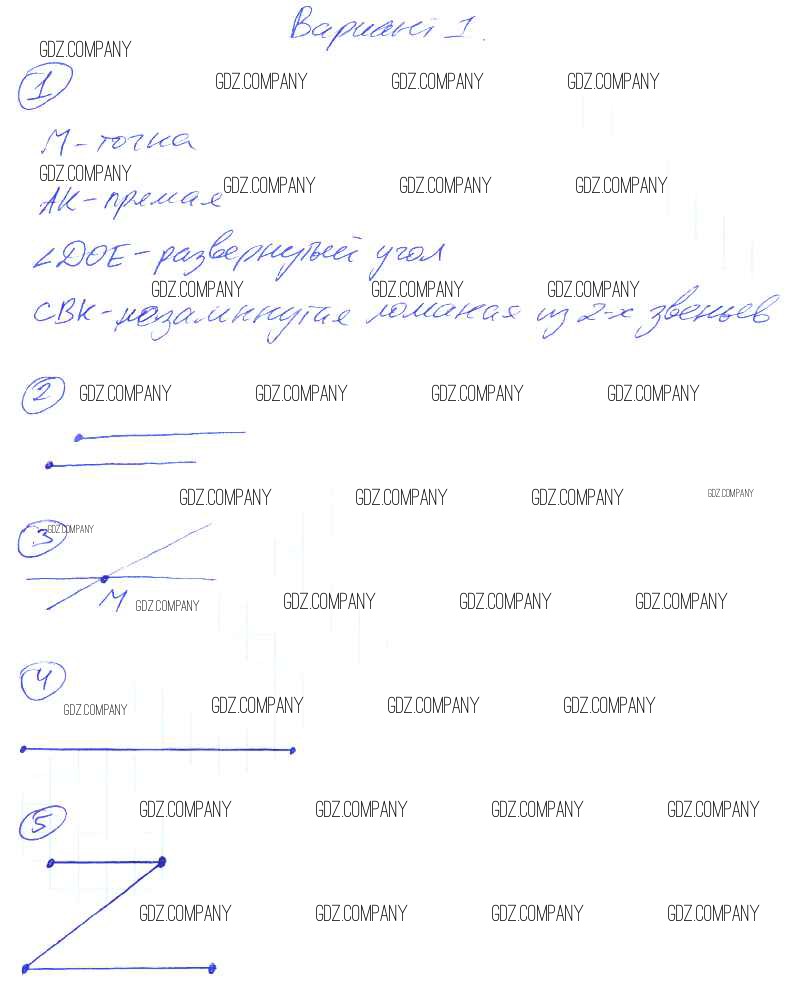 Вариант 1.
GDZ.COMPANY
1
GDZ.COMPANY GDZ.COMPANY GDZ.COMPANY
М - точка
GDZ.COMPANY GDZ.COMPANY GDZ.COMPANY GDZ.COMPANY
АК - прямая
∠DOE - развернутый угол
GDZ.COMPANY GDZ.COMPANY GDZ.COMPANY
СВК - незамкнутая ломаная из 2-х звеньев
2 GDZ.COMPANY GDZ.COMPANY GDZ.COMPANY GDZ.COMPANY
GDZ.COMPANY GDZ.COMPANY GDZ.COMPANY GDZ.COMPANY
3 GDZ.COMPANY
М GDZ.COMPANY GDZ.COMPANY GDZ.COMPANY GDZ.COMPANY
4
GDZ.COMPANY GDZ.COMPANY GDZ.COMPANY GDZ.COMPANY
5 GDZ.COMPANY GDZ.COMPANY GDZ.COMPANY GDZ.COMPANY
GDZ.COMPANY GDZ.COMPANY GDZ.COMPANY GDZ.COMPANY